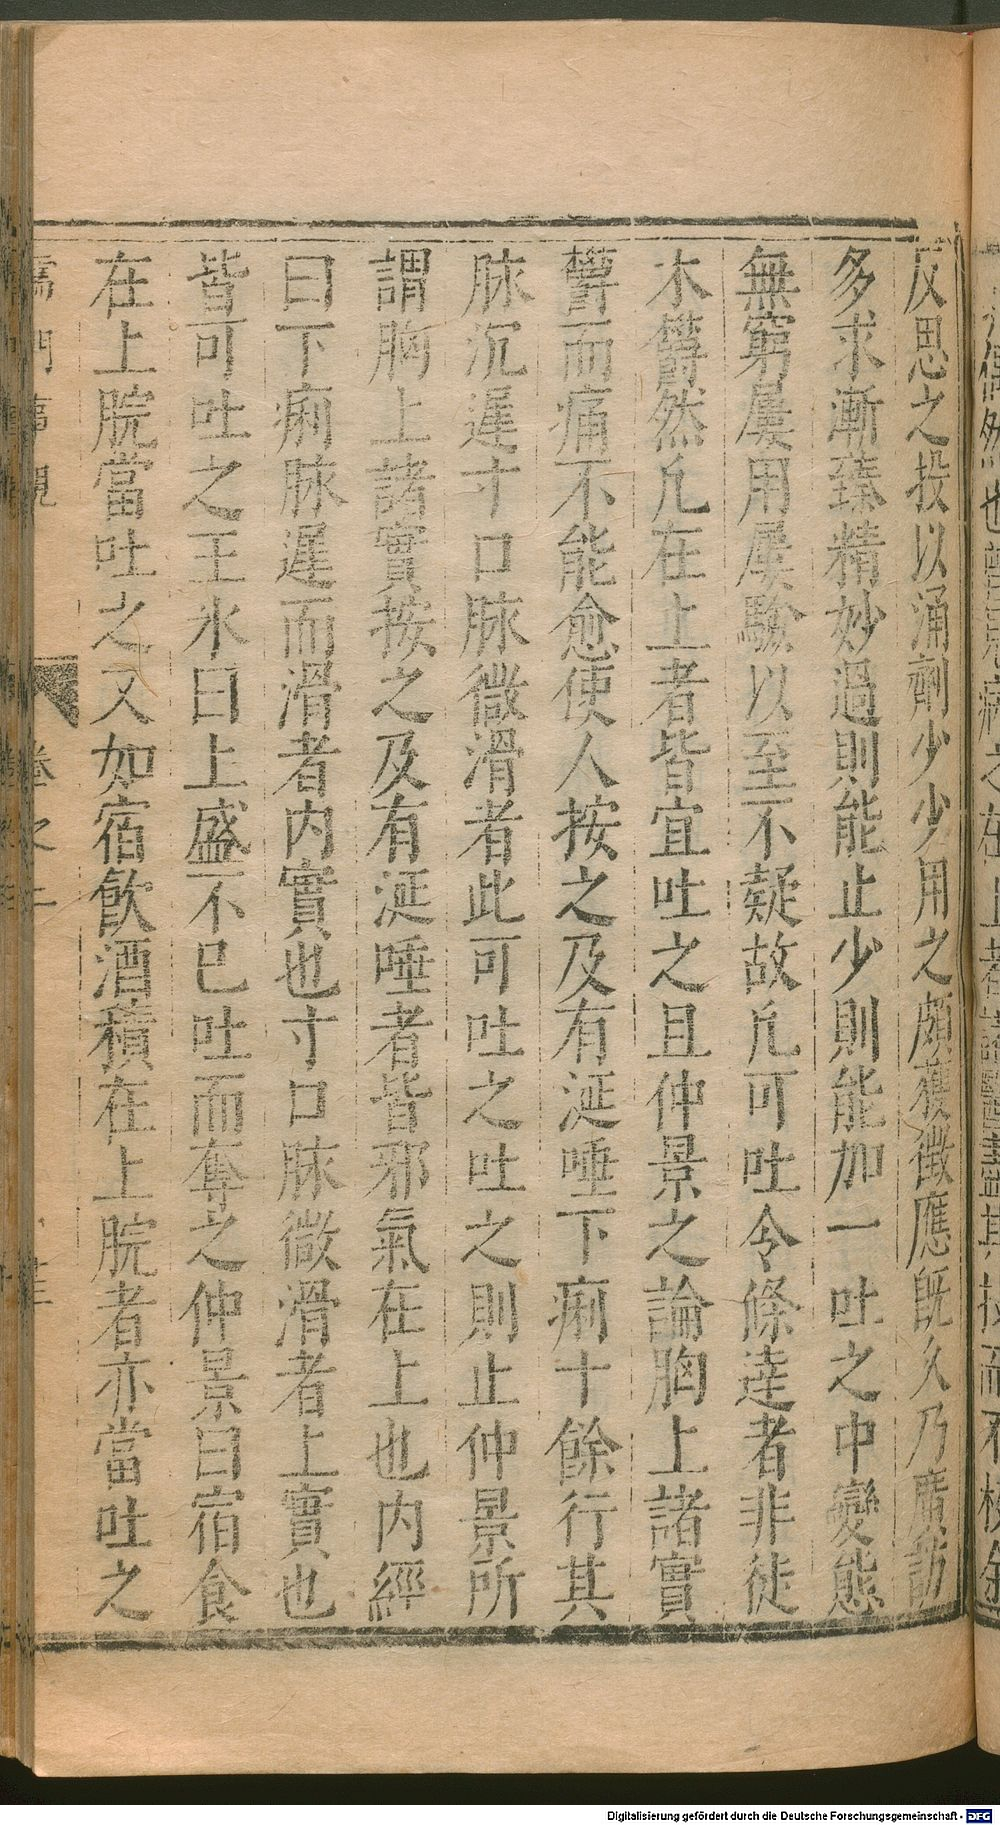 反思之投以涌劑少少用之頗獲徵應旣久乃廣訪
多求漸臻精妙過則能止少則能加一吐之中變態
無窮屢用屢驗以至不疑故凢可吐令條達者非徒
木欝然凢在上者皆宜吐之且仲景之論胸上諸實
欝而痛不能愈使人按之及有涎唾下痢十餘行其
脉沉遲寸口脉微滑者此可吐之吐之則止仲景所
謂胸上諸實按之及有涎唾者皆邪氣在上也内經
曰下痢脉遲而滑者内實也寸口脉微滑者上實也
皆可吐之王氷曰上盛不已吐而奪之仲景曰宿食
在上脘當吐之又如宿飲酒積在上脘者亦當吐之
儒門事親 卷之二
Digitalisierung gefördert durch die Deutsche Forschungsgemeinschaft - DFG